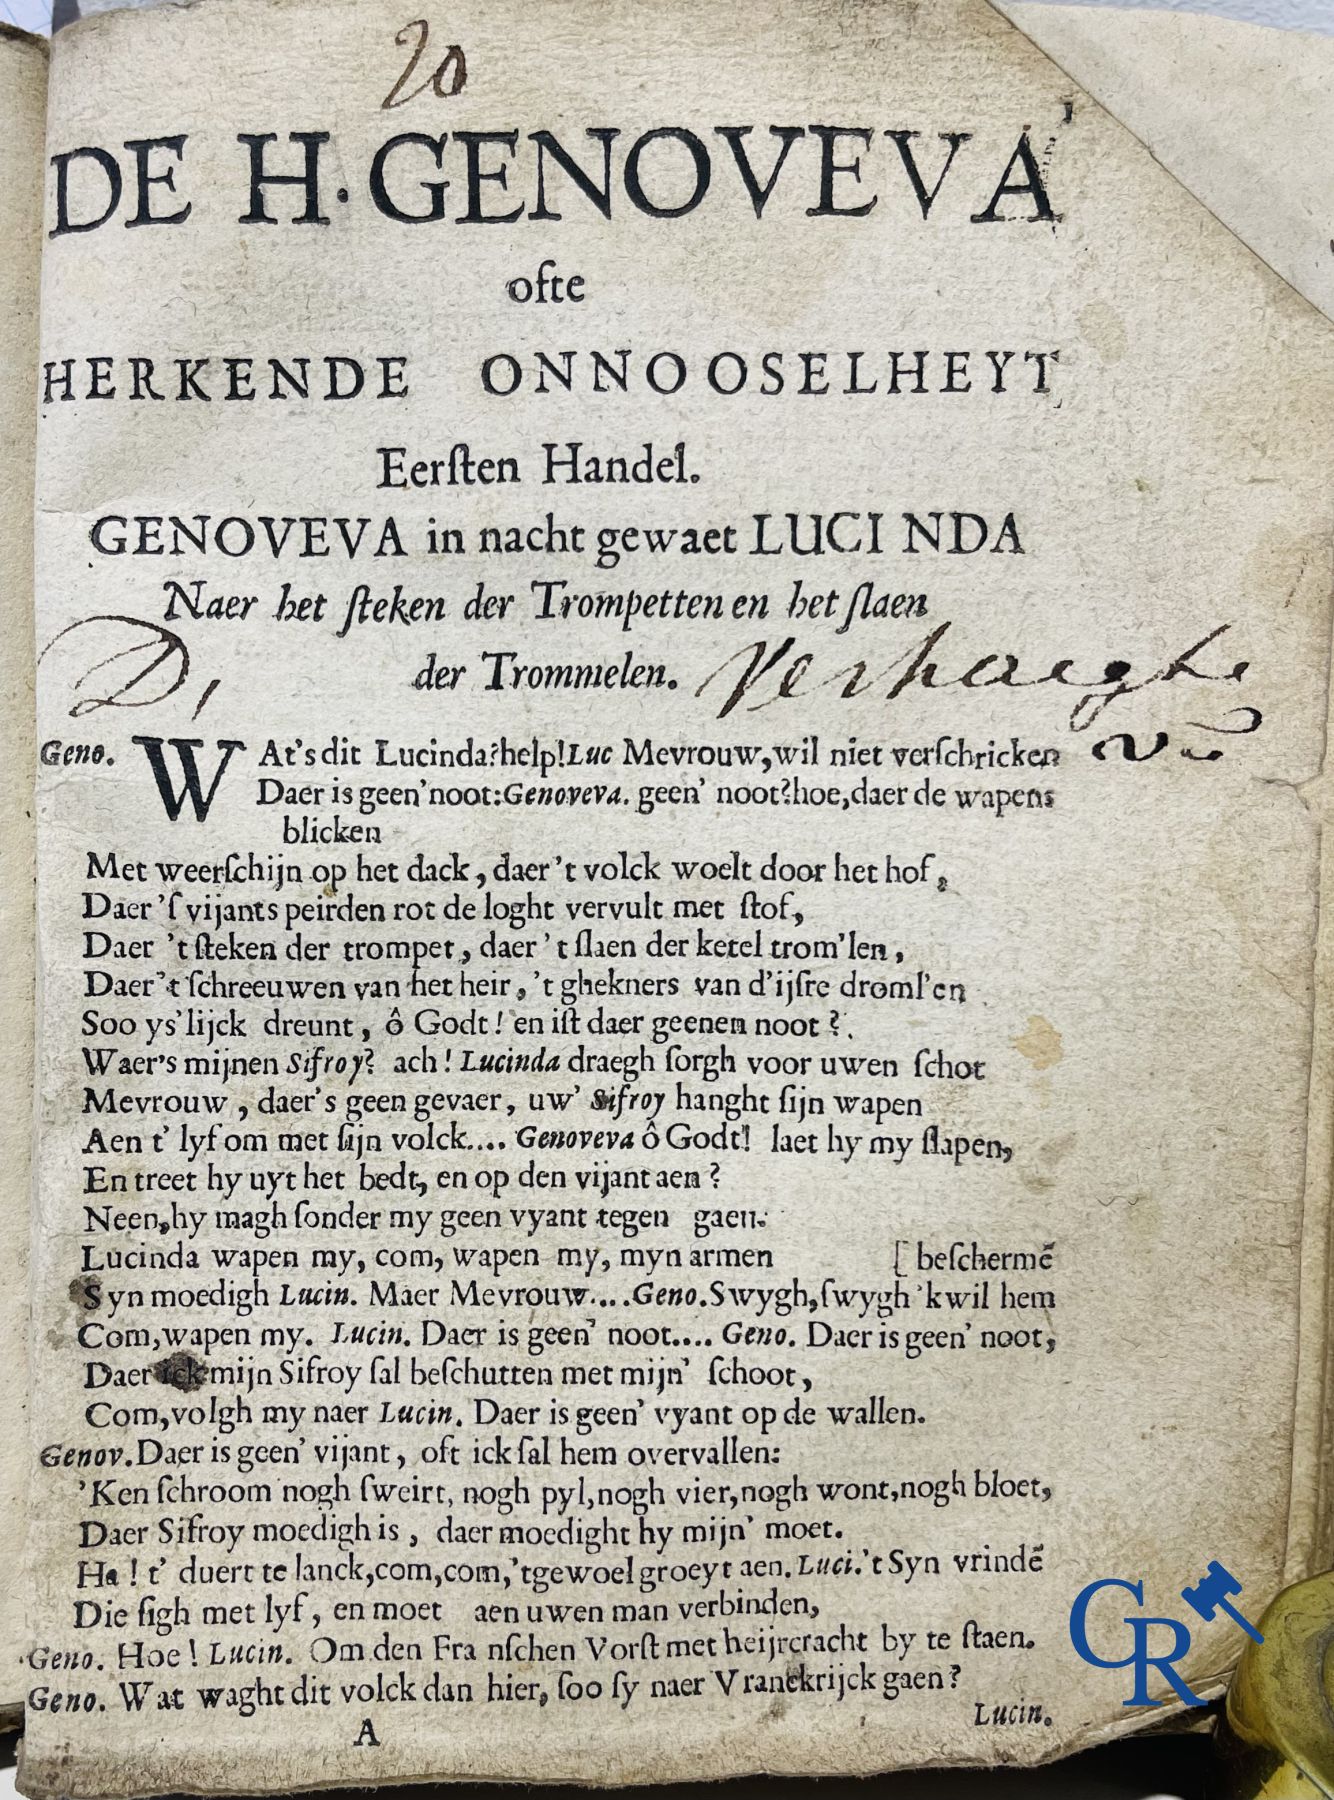 20
DE H. GENOVEVA
ofte
HERKENDE ONNOOSELHEYT
Eerſten Handel.
GENOVEVA in nacht gewaet LUCINDA
Naer het ſteken der Trompetten en het ſlaen
der Trommelen.
D, Verhaeghe
Geno. WAt's dit Lucinda? help! Luc Mevrouw, wil niet verſchricken
Daer is geen' noot: Genoveva. geen' noot? hoe, daer de wapens
blicken
Met weerſchijn op het dack, daer 't volck woelt door het hof,
Daer 'ſ vijants peirden rot de loght vervult met ſtof,
Daer 't ſteken der trompet, daer 't ſlaen der ketel trom'len,
Daer 't ſchreeuwen van het heir, 't ghekners van d'ijſre droml'en
Soo ys'lijck dreunt, ô Godt! en iſt daer geenen noot?
Waer's mijnen Sifroy? ach! Lucinda draegh ſorgh voor uwen ſchot
Mevrouw, daer's geen gevaer, uw' Sifroy hanght ſijn wapen
Aen t' lyf om met ſijn volck.... Genoveva ô Godt! laet hy my ſlapen,
En treet hy uyt het bedt, en op den vijant aen?
Neen, hy magh ſonder my geen vyant tegen gaen.
Lucinda wapen my, com, wapen my, myn armen [ beſchermē
Syn moedigh Lucin. Maer Mevrouw.... Geno. Swygh, ſwygh 'k wil hem
Com, wapen my. Lucin. Daer is geen' noot.... Geno. Daer is geen' noot,
Daer ick mijn Sifroy ſal beſchutten met mijn' ſchoot,
Com, volgh my naer Lucin. Daer is geen' vyant op de wallen.
Genov. Daer is geen' vijant, oft ick ſal hem overvallen:
'Ken ſchroom nogh ſweirt, nogh pyl, nogh vier, nogh wont, nogh bloet,
Daer Sifroy moedigh is, daer moedight hy mijn' moet.
Ha! t' duert te lanck, com, com, 't gewoel groeyt aen. Luci. 't Syn vrindē
Die ſigh met lyf, en moet aen uwen man verbinden,
Geno. Hoe! Lucin. Om den Franſchen Vorſt met heijrcracht by te ſtaen.
Geno. Wat waght dit volck dan hier, ſoo ſy naer Vranckrijck gaen?
Lucin.
A
CR